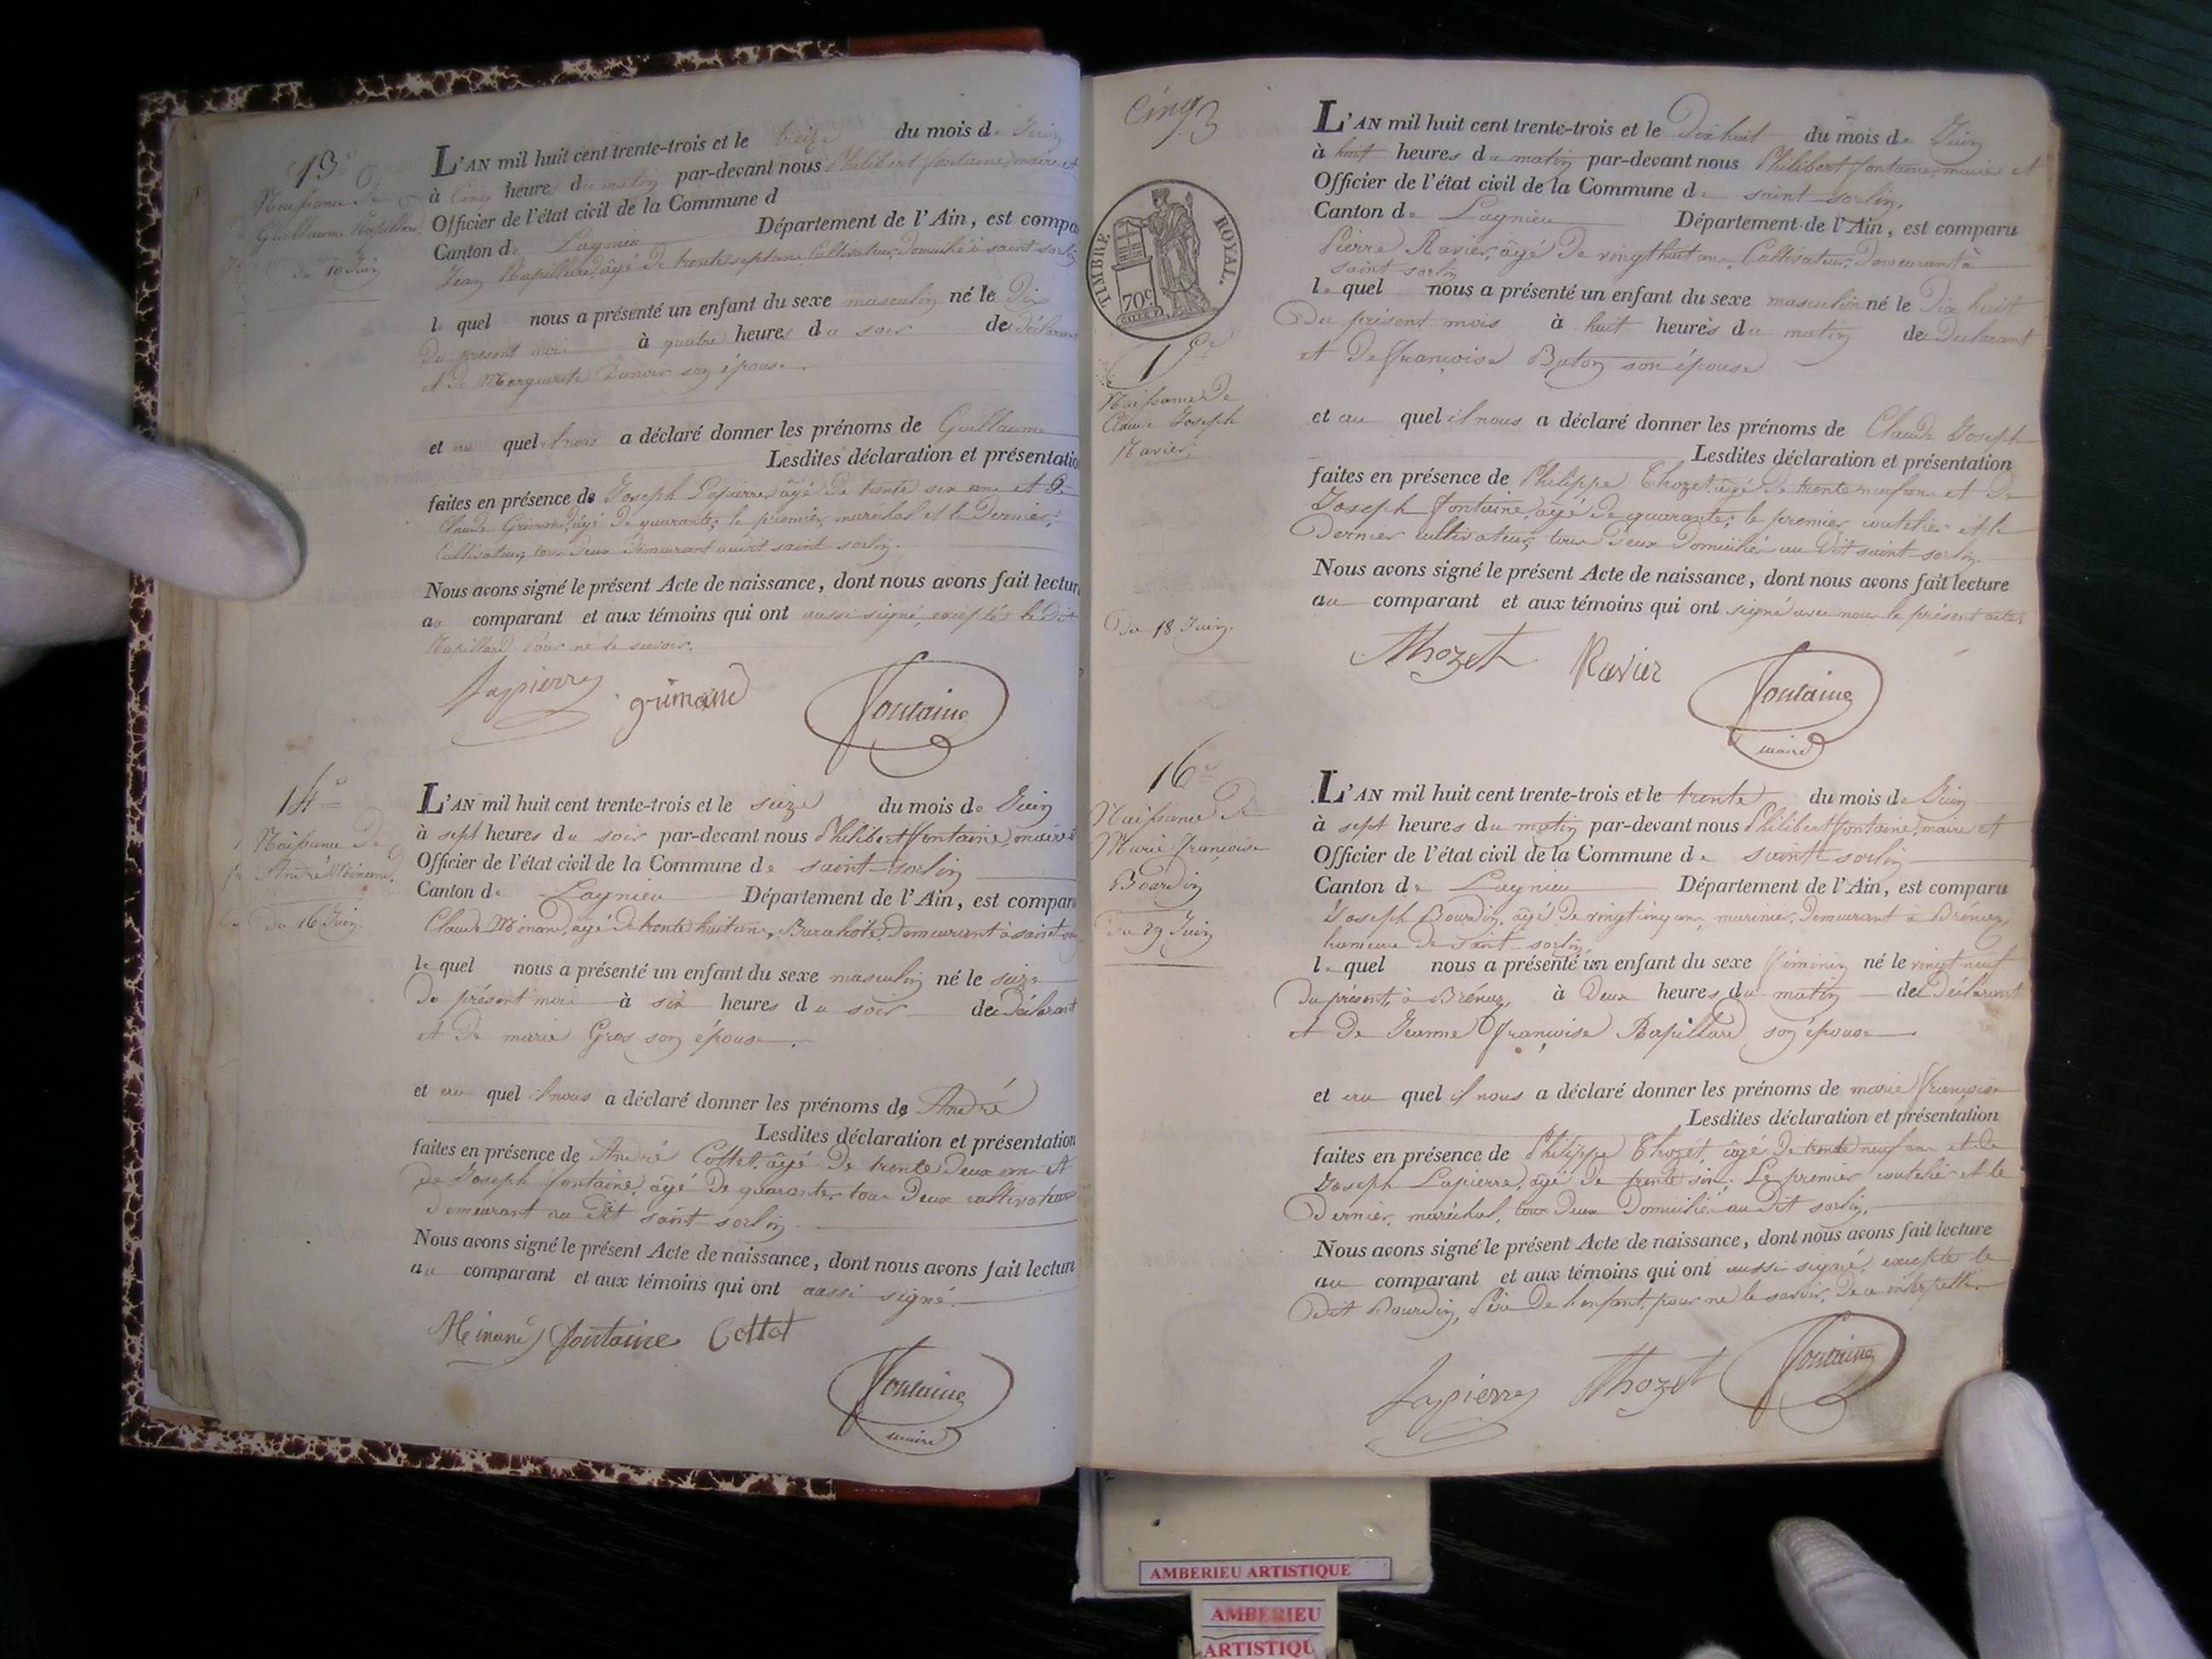 13e
Naissance de
Guillaume Rapillard
du 10 Juin
L'AN mil huit cent trente-trois et le treize du mois de Juin
à cinq heure du matin par-devant nous Philibert fontaine, maire et
Officier de l'état civil de la Commune d
Canton de Lagnieu Département de l'Ain, est compa
Jean Rapillard, âgé de trente sept ans, Cultivateur, Domicilié à saint-sorlin
le quel nous a présenté un enfant du sexe masculin né le Dix
Du présent mois à quatre heures du soir de déclarant
et de Marguerite son épouse.
et au quel il nous a déclaré donner les prénoms de Guillaume
Lesdites déclaration et présentatio
faites en présence de Joseph Lapierre, âgé de trente six ans et de
Claude Grimand, âgé de quarante; le premier maréchal et le Dernier,
Cultivateur, tous deux demeurant audit saint-sorlin.
Nous avons signé le présent Acte de naissance, dont nous avons fait lectur
au comparant et aux témoins qui ont aussi signé, excepté le dit
Rapillard pour ne le savoir.
Lapierre grimand fontaine
14e
Naissance de
André Meinand
du 16 Juin.
L'AN mil huit cent trente-trois et le seize du mois de Juin
à sept heures du soir par-devant nous Philibert fontaine, maire et
Officier de l'état civil de la Commune de saint-sorlin
Canton de Lagnieu Département de l'Ain, est compar
Claude Meinand, âgé de trente huit ans, demeurant à saint
le quel nous a présenté un enfant du sexe masculin né le seize
du présent mois à six heures du soir de déclarant
et de marie Gros son épouse.
et au quel il nous a déclaré donner les prénoms de André
Lesdites déclaration et présentation
faites en présence de André Cottet, âgé de trente deux ans et
de Joseph fontaine, âgé de quarante, tous deux cultivateurs
demeurant au dit saint-sorlin
Nous avons signé le présent Acte de naissance, dont nous avons fait lecture
au comparant et aux témoins qui ont aussi signé.
Meinand fontaine Cottet
fontaine
maire
Cinq
TIMBRE ROYAL.
70c
15e
Naissance de
Claude Joseph
Ravier,
Du 18 Juin.
L'AN mil huit cent trente-trois et le Dix huit du mois de Juin
à huit heures du matin par-devant nous Philibert fontaine, maire et
Officier de l'état civil de la Commune de saint-sorlin,
Canton de Lagnieu Département de l'Ain, est comparu
Pierre Ravier, âgé de vingt huit ans, Cultivateur, Demeurant à
saint-sorlin
le quel nous a présenté un enfant du sexe masculin né le Dix huit
Du présent mois à huit heures du matin de Déclarant
et De françoise Baton son épouse
et au quel il nous a déclaré donner les prénoms de Claude Joseph
Lesdites déclaration et présentation
faites en présence de Philippe Thozet, âgé de trente neuf ans et de
Joseph fontaine, âgé de quarante; le premier coutelier et le
Dernier cultivateur, tous deux Domiciliés au dit saint-sorlin.
Nous avons signé le présent Acte de naissance, dont nous avons fait lecture
au comparant et aux témoins qui ont signé avec nous le présent acte.
Thozet Ravier fontaine
maire
16e
Naissance de
Marie françoise
Bourdin
du 29 Juin
L'AN mil huit cent trente-trois et le trente du mois de Juin
à sept heures du matin par-devant nous Philibert fontaine, maire et
Officier de l'état civil de la Commune de saint-sorlin
Canton de Lagnieu Département de l'Ain, est comparu
Joseph Bourdin, âgé de vingt cinq ans, marinier, Demeurant à Brénaz,
hameau de saint-sorlin,
le quel nous a présenté un enfant du sexe féminin né le vingt neuf
du présent, à Brénaz, à Deux heures du matin de Déclarant
et de Jeanne françoise Rapillard, son épouse
et au quel il nous a déclaré donner les prénoms de marie françoise
Lesdites déclaration et présentation
faites en présence de Philippe Thozet, âgé de trente neuf ans et de
Joseph Lapierre, âgé de trente six; Le premier coutelier et le
Dernier, maréchal, tous deux Domiciliés au dit sorlin.
Nous avons signé le présent Acte de naissance, dont nous avons fait lecture
au comparant et aux témoins qui ont aussi signé, excepté le
Dit Bourdin, Père De l'enfant, pour ne le savoir, de ce interpellé.
Lapierre Thozet fontaine
AMBERIEU ARTISTIQUE
AMBERIEU
ARTISTIQU